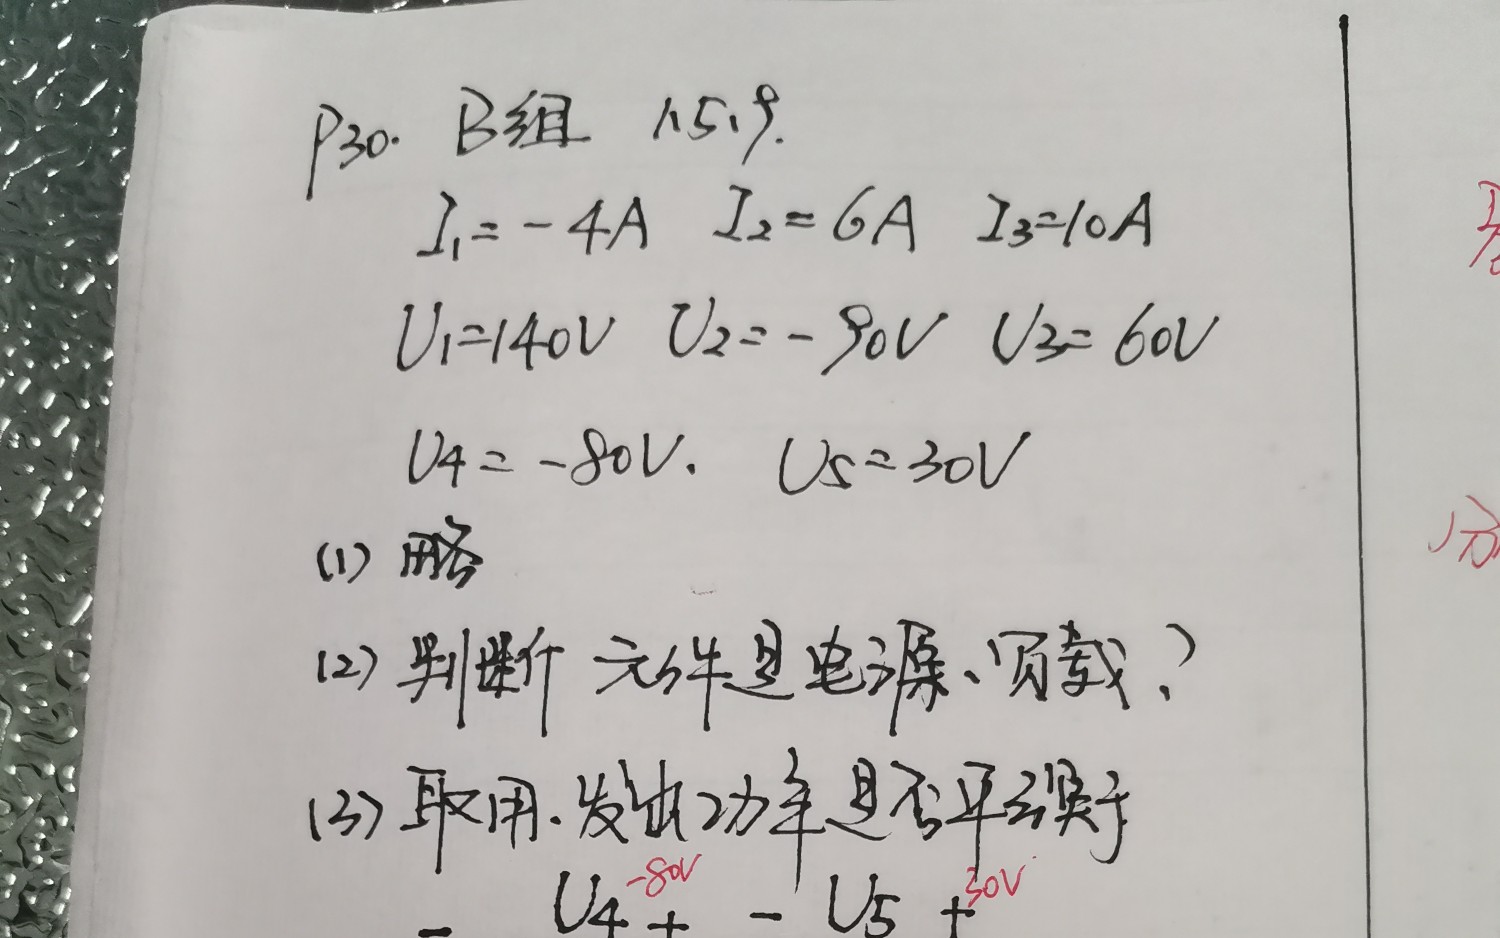 P30. B组 1.5.9.
I1=-4A I2=6A I3=10A
U1=140V U2=-90V U3=60V
U4=-80V. U5=30V
(1) 略
(2) 判断元件是电源、负载?
(3) 取用、发出功率是否平衡
-80V 30V
- U4 + - U5 +